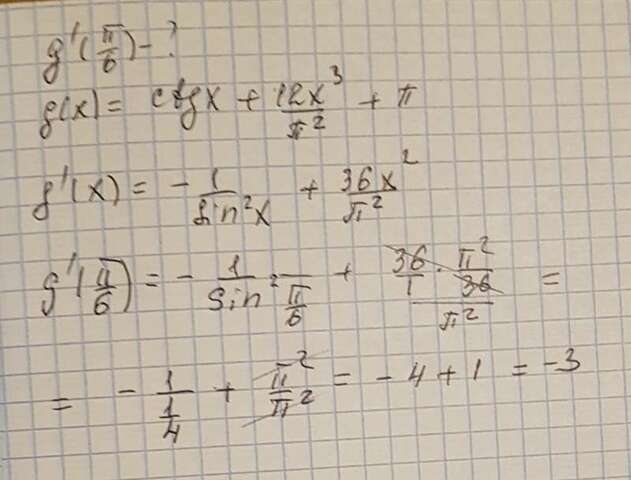 g'(π/6) - ?
g(x) = ctgx + 12x³/π² + π
g'(x) = - 1/sin²x + 36x²/π²
g'(π/6) = - 1/sin² π/6 + (36/1 · π²/36)/π² =
= - 1/(1/4) + π²/π² = - 4 + 1 = -3